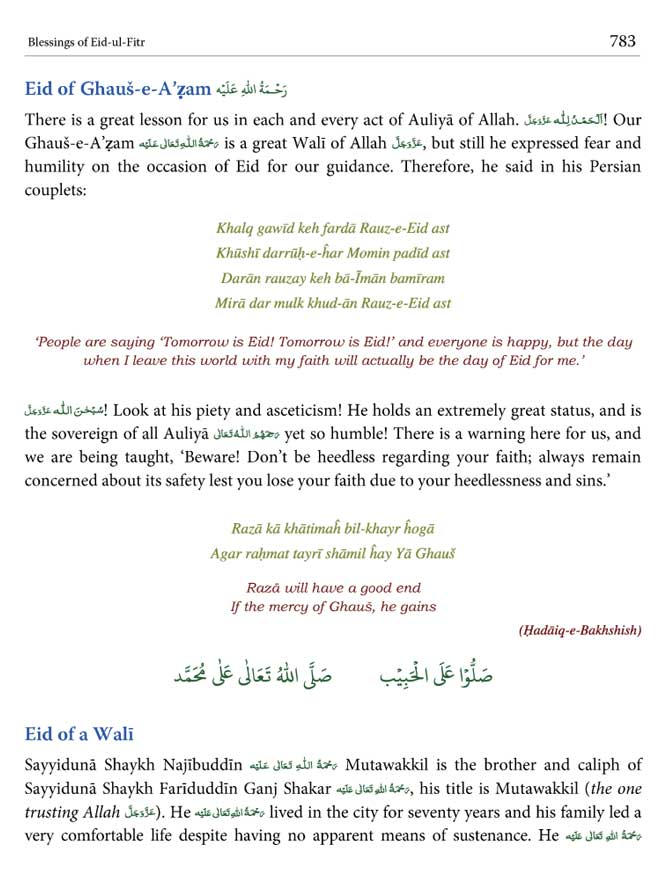 Blessings of Eid-ul-Fitr 783
Eid of Ghauš-e-A’ẓam رَحْمَةُ اللهِ عَلَيْه
There is a great lesson for us in each and every act of Auliyā of Allah. اَلْحَمْدُلِلّٰه عَزَّوَجَلَّ! Our
Ghauš-e-A’ẓam رَحْمَةُ اللهِ تَعَالٰى عَلَيْه is a great Walī of Allah عَزَّوَجَلَّ, but still he expressed fear and
humility on the occasion of Eid for our guidance. Therefore, he said in his Persian
couplets:
Khalq gawīd keh fardā Rauz-e-Eid ast
Khūshī darrūḥ-e-ĥar Momin padīd ast
Darān rauzay keh bā-Īmān bamīram
Mirā dar mulk khud-ān Rauz-e-Eid ast
‘People are saying ‘Tomorrow is Eid! Tomorrow is Eid!’ and everyone is happy, but the day
when I leave this world with my faith will actually be the day of Eid for me.’
سُبْحٰنَ اللّٰه عَزَّوَجَلَّ! Look at his piety and asceticism! He holds an extremely great status, and is
the sovereign of all Auliyā رَحِمَهُمُ اللهُ تَعَالٰى yet so humble! There is a warning here for us, and
we are being taught, ‘Beware! Don’t be heedless regarding your faith; always remain
concerned about its safety lest you lose your faith due to your heedlessness and sins.’
Razā kā khātimaĥ bil-khayr ĥogā
Agar raḥmat tayrī shāmil ĥay Yā Ghauš
Razā will have a good end
If the mercy of Ghauš, he gains
(Ḥadāiq-e-Bakhshish)
صَلُّوْا عَلَى الْحَبِيْب صَلَّى اللهُ تَعَالٰى عَلٰى مُحَمَّد
Eid of a Walī
Sayyidunā Shaykh Najībuddīn رَحْمَةُ اللهِ تَعَالٰى عَلَيْه Mutawakkil is the brother and caliph of
Sayyidunā Shaykh Farīduddīn Ganj Shakar رَحْمَةُ اللهِ تَعَالٰى عَلَيْه, his title is Mutawakkil (the one
trusting Allah عَزَّوَجَلَّ). He رَحْمَةُ اللهِ تَعَالٰى عَلَيْه lived in the city for seventy years and his family led a
very comfortable life despite having no apparent means of sustenance. He رَحْمَةُ اللهِ تَعَالٰى عَلَيْه